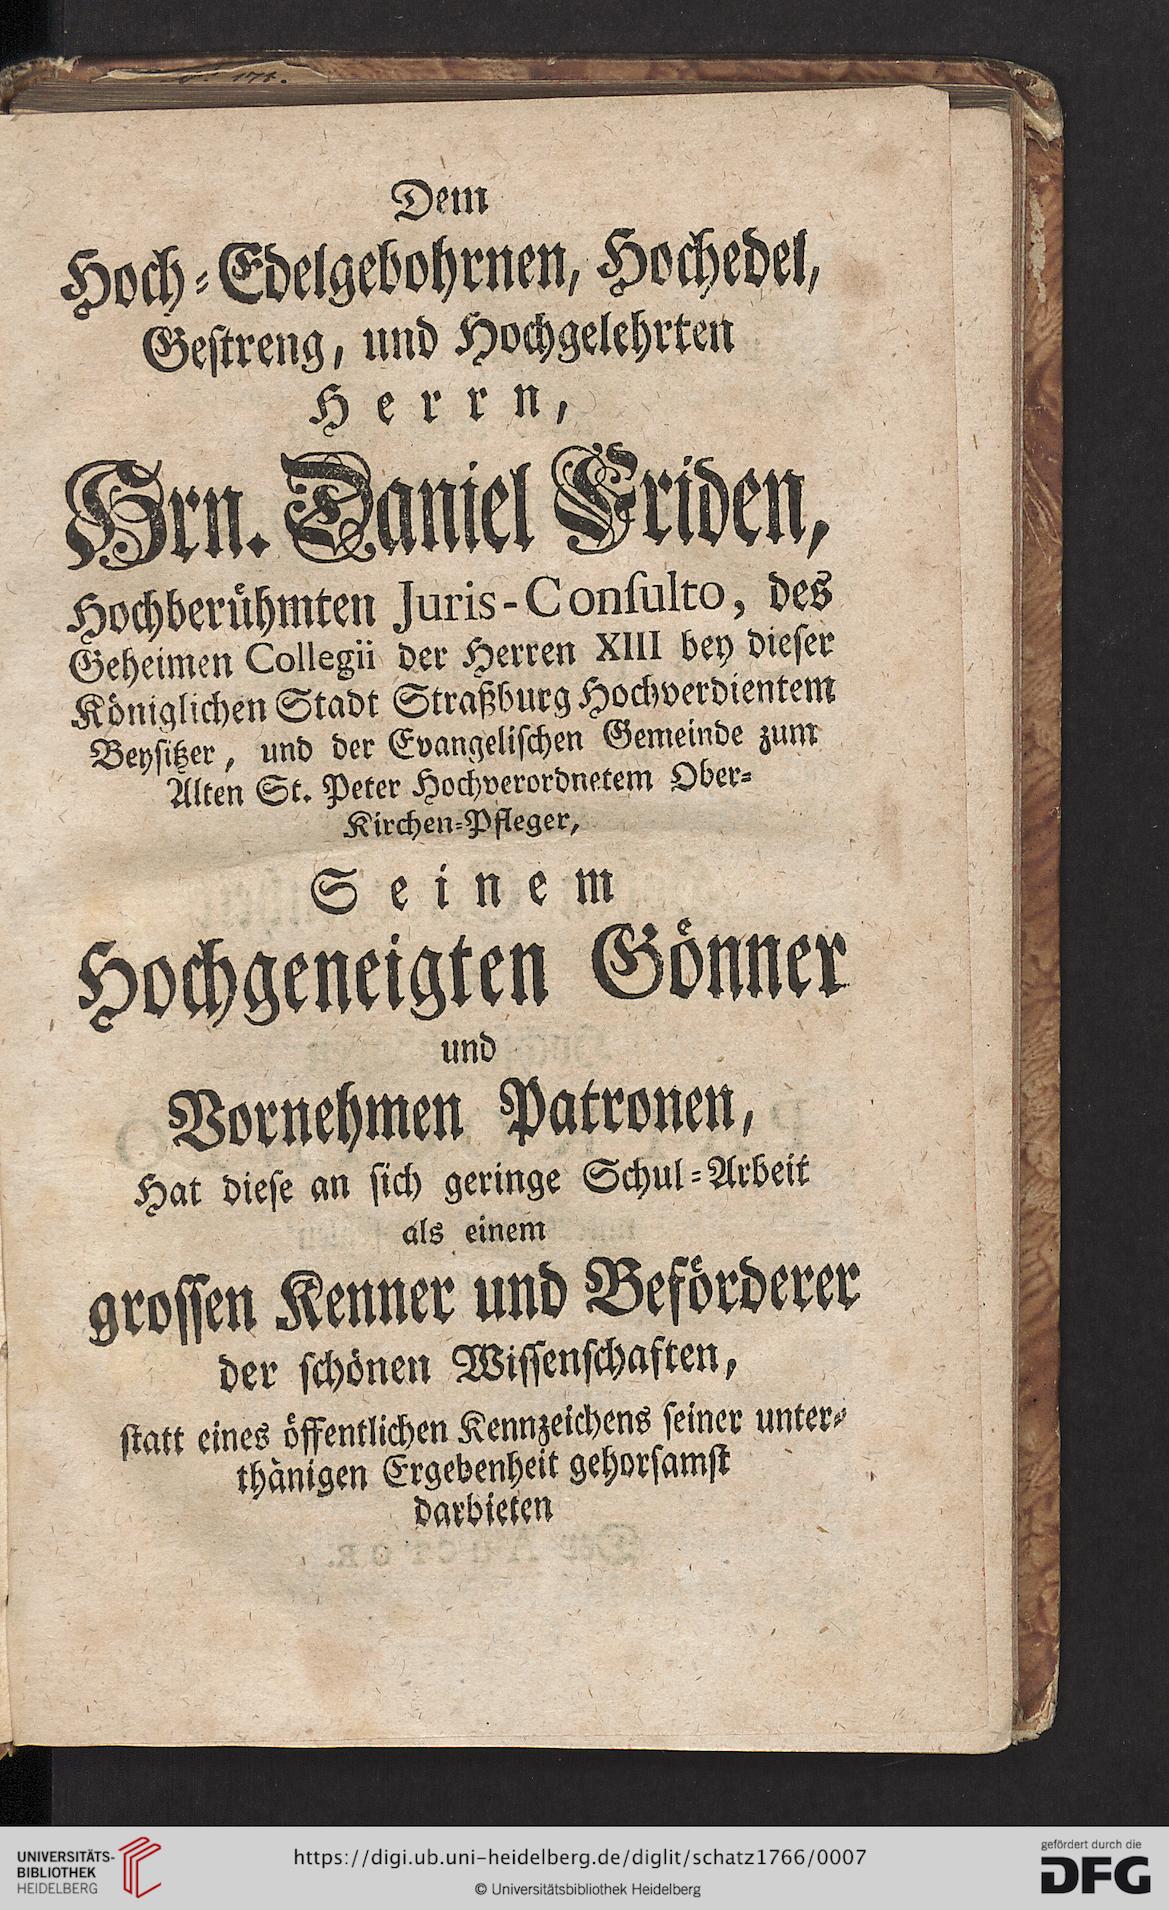 Dem
Hoch-Edelgebohrnen, Hochedel,
Gestreng, und Hochgelehrten
Herrn,
Hrn. Daniel Friden,
Hochberühmten Juris-Conſulto, des
Geheimen Collegii der Herren XIII bey dieſer
Königlichen Stadt Straßburg Hochverdientem
Beyſitzer, und der Evangeliſchen Gemeinde zum
Alten St. Peter Hochverordnetem Ober-
Kirchen-Pfleger,
Seinem
Hochgeneigten Gönner
und
Vornehmen Patronen,
Hat dieſe an ſich geringe Schul-Arbeit
als einem
groſſen Kenner und Beförderer
der ſchönen Wiſſenſchaften,
ſtatt eines öffentlichen Kennzeichens ſeiner unter-
thänigen Ergebenheit gehorſamſt
darbieten
UNIVERSITÄTS-
BIBLIOTHEK
HEIDELBERG
https://digi.ub.uni-heidelberg.de/diglit/schatz1766/0007
© Universitätsbibliothek Heidelberg
gefördert durch die
DFG